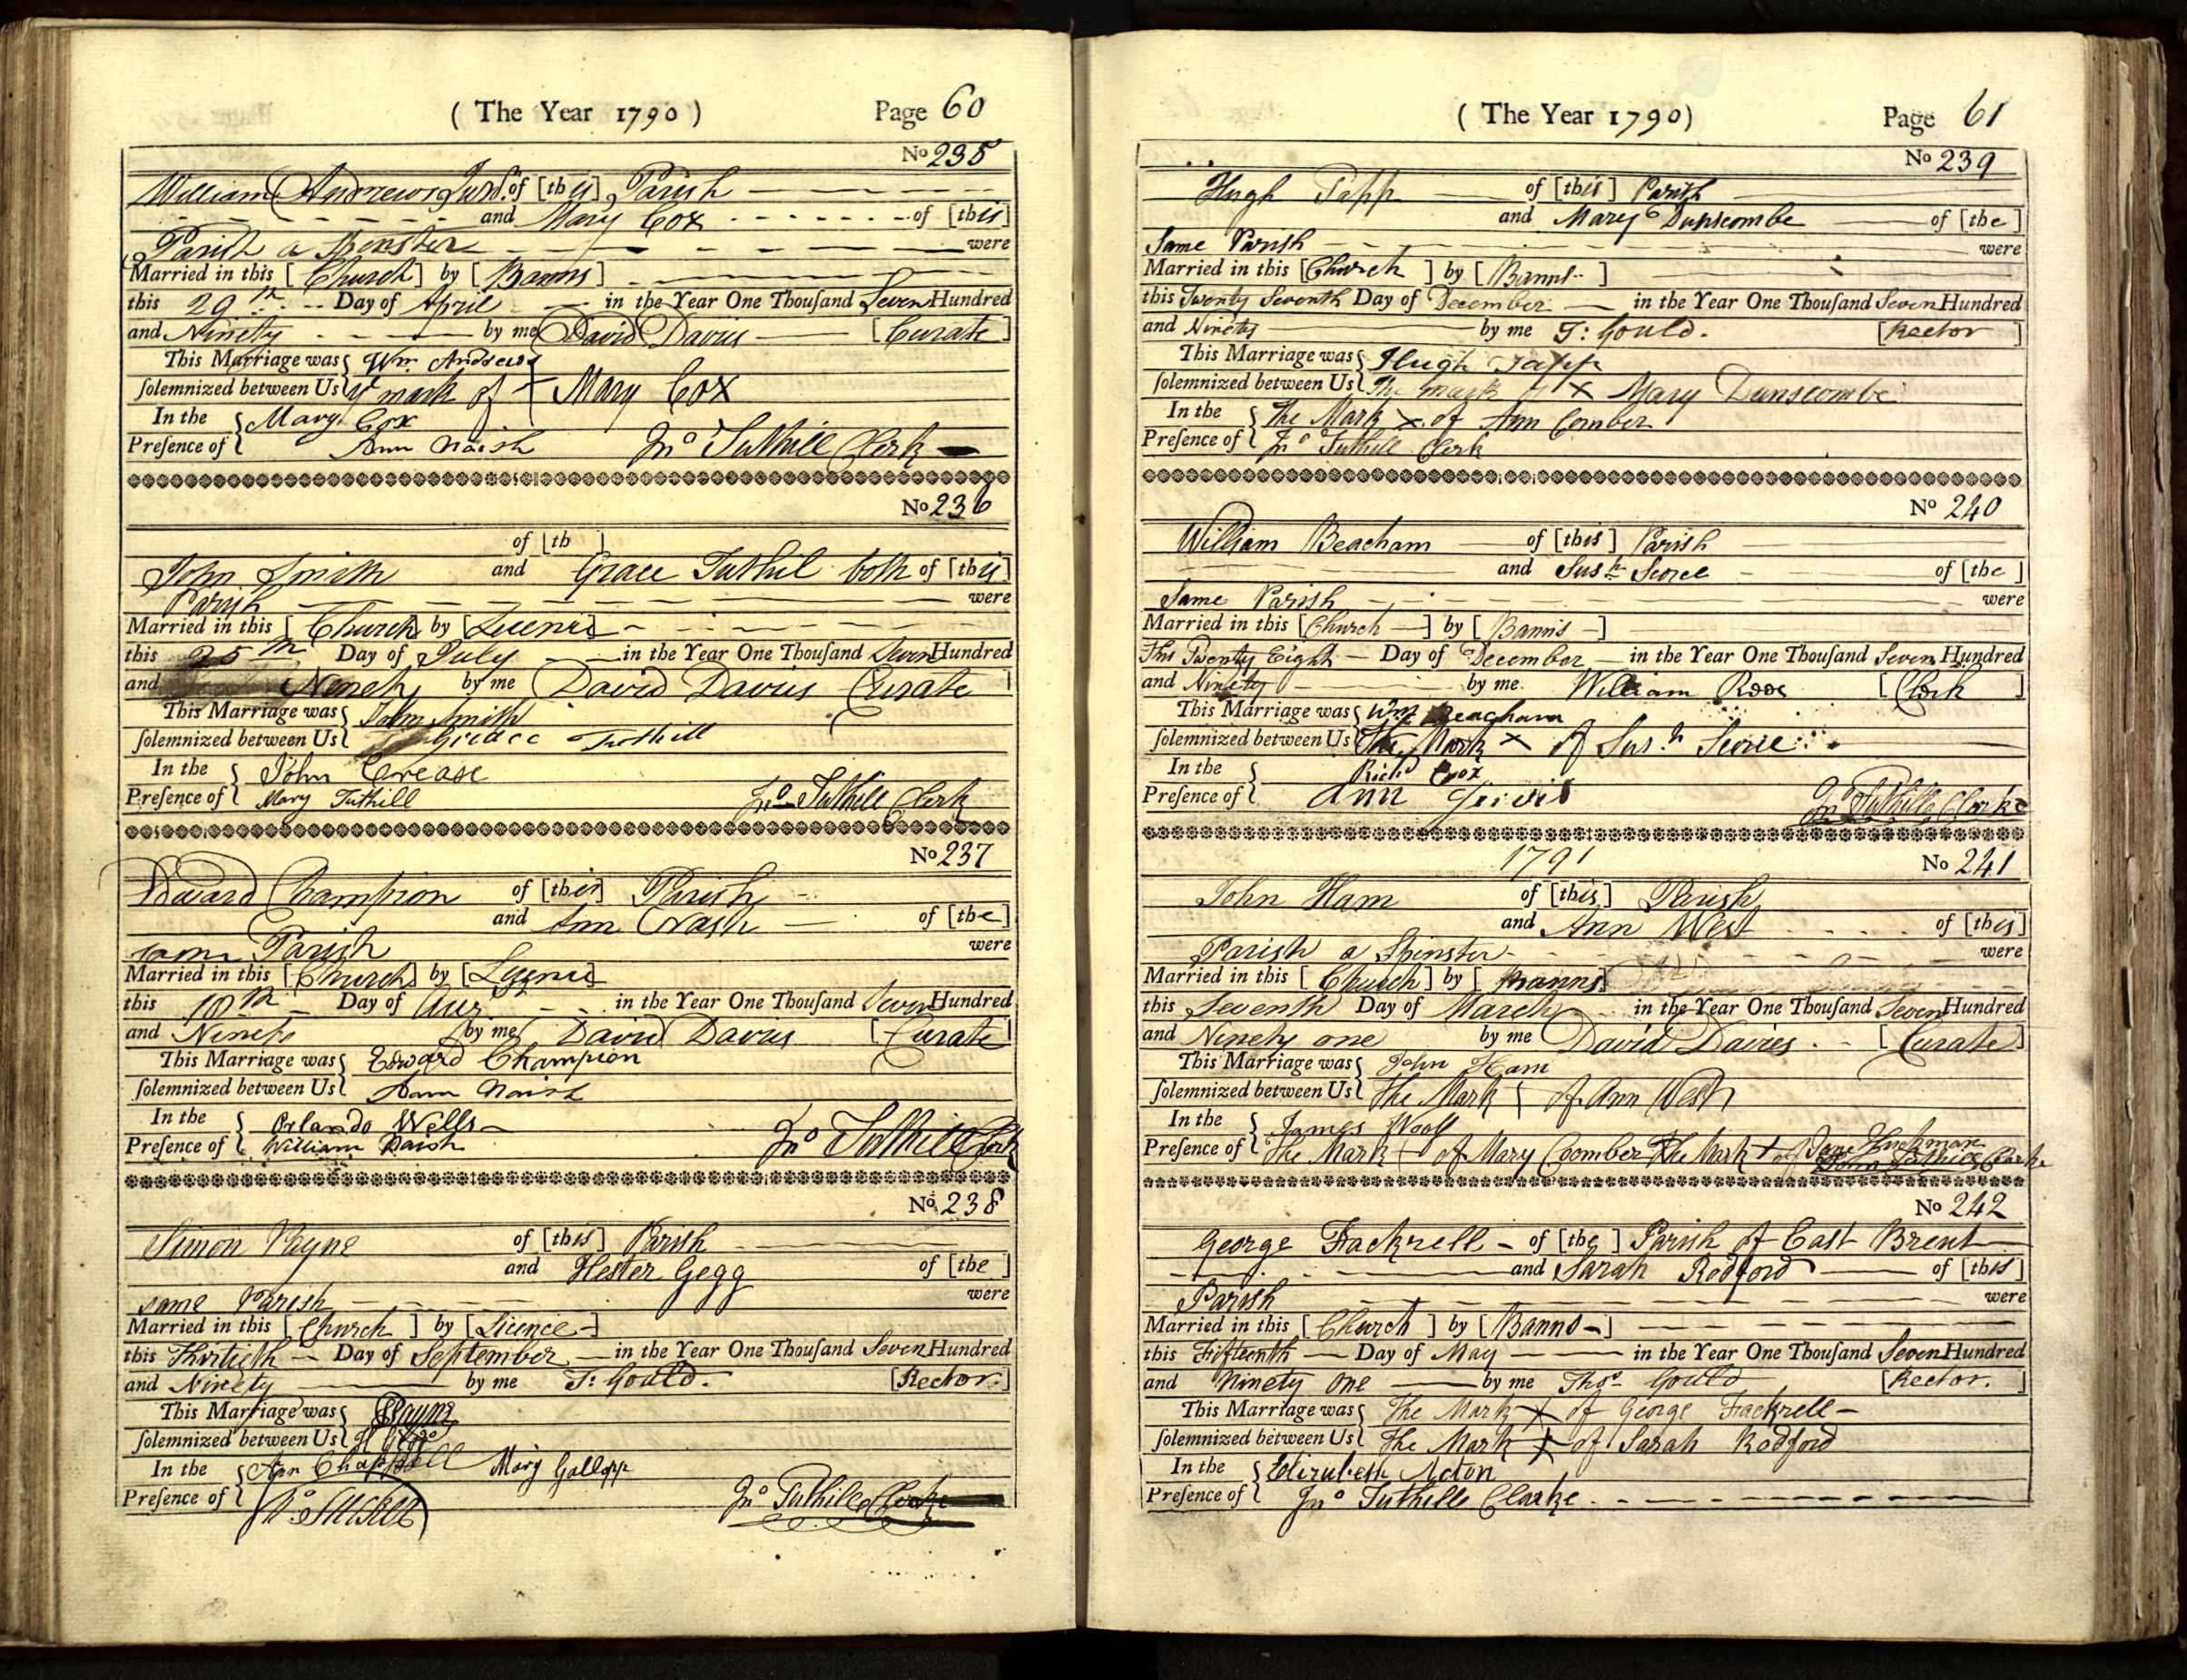 ( The Year 1790 ) Page 60
No 235
William Andrews Junr. of [this] Parish
and Mary Cox of [this]
Parish a Spinster were
Married in this [Church] by [Banns]
this 29th Day of April in the Year One Thouſand Seven Hundred
and Ninety by me David Davies [Curate]
This Marriage was Wm. Andrews
ſolemnized between Us ye mark of Mary Cox
In the Mary Cox
Preſence of Ann Naish Jno Tuthill Clerk
No 236
of [th ]
John Smith and Grace Tuthil both of [this]
Parish were
Married in this [Church] by [Licence]
this 25th Day of July in the Year One Thouſand Seven Hundred
and Ninety by me David Davies Curate
This Marriage was John Smith
ſolemnized between Us Grace Tuthill
In the John Crease
Preſence of Mary Tuthill Jno Tuthill Clerk
No 237
Edward Champion of [this] Parish
and Ann Nash of [the]
same Parish were
Married in this [Church] by [Lycence]
this 10th Day of Aug in the Year One Thouſand Seven Hundred
and Ninety by me David Davies [Curate]
This Marriage was Edward Champion
ſolemnized between Us Ann Naish
In the Orlando Wells
Preſence of William Naish Jno Tuthill Clerk
No 238
Simon Payne of [this] Parish
and Hester Gegg of [the]
same Parish were
Married in this [Church] by [Licence]
this Thirtieth Day of September in the Year One Thouſand Seven Hundred
and Ninety by me T: Gould. [Rector.]
This Marriage was SPayne
ſolemnized between Us H Gegg
In the Ann Chappell Mary Gollopp
Preſence of Jno Tuthill Clerke
( The Year 1790) Page 61
No 239
Hugh Tapp of [this] Parish
and Mary Dunscombe of [the]
Same Parish were
Married in this [Church] by [Banns]
this Twenty Seventh Day of December in the Year One Thouſand Seven Hundred
and Ninety by me T: Gould. [Rector]
This Marriage was Hugh Tapp
ſolemnized between Us The mark of X Mary Dunscombe
In the The Mark X of Ann Comber
Preſence of Jno Tuthill Clerk
No 240
William Beacham of [this] Parish
and Sush of [the]
Same Parish were
Married in this [Church] by [Banns]
This Twenty Eight Day of December in the Year One Thouſand Seven Hundred
and Ninety by me William Rooe [Clerk]
This Marriage was Wm Beacham
ſolemnized between Us The Mark X of Sush
In the Richd Cox
Preſence of Ann Jno Tuthill Clarke
1791 No 241
John Ham of [this] Parish
and Ann West of [this]
Parish a Spinster were
Married in this [Church] by [Banns]
this Seventh Day of March in the Year One Thouſand Seven Hundred
and Ninety one by me David Davies. [Curate]
This Marriage was John Ham
ſolemnized between Us The Mark of Ann West
In the James Wooll
Preſence of The Mark of Mary Coomber The Mark + of Jane Huckman
John Tuthill Clarke
No 242
George Fackrell of [the] Parish of East Brent
and Sarah Rodford of [this]
Parish were
Married in this [Church] by [Banns]
this Fifteenth Day of May in the Year One Thouſand Seven Hundred
and Ninety One by me Thos. Gould [Rector.]
This Marriage was The Mark X of George Fackrell
ſolemnized between Us The Mark X of Sarah Rodford
In the Elizabeth Acton
Preſence of Jno Tuthill Clarke.